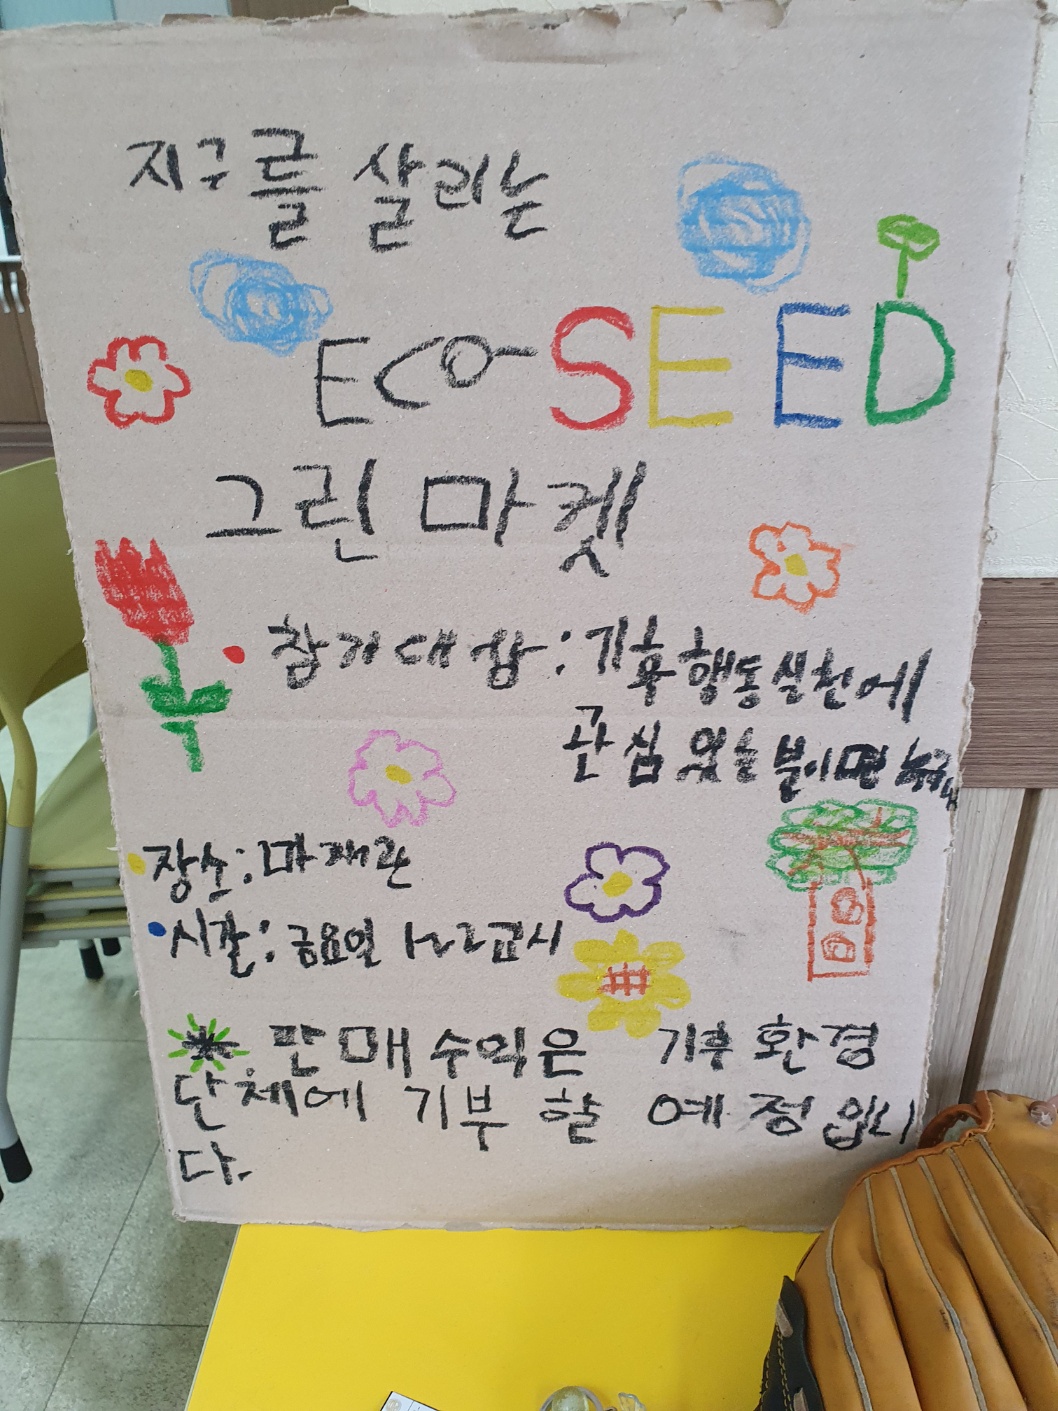 지구를 살리는
ECO-SEED
그린 마켓
• 참가대상 : 기후행동실천에
관심 있는 분이면 누구나
• 장소 : 마재관
• 시간 : 금요일 1~2교시
※ 판매 수익은 기후환경
단체에 기부 할 예정입니
다.